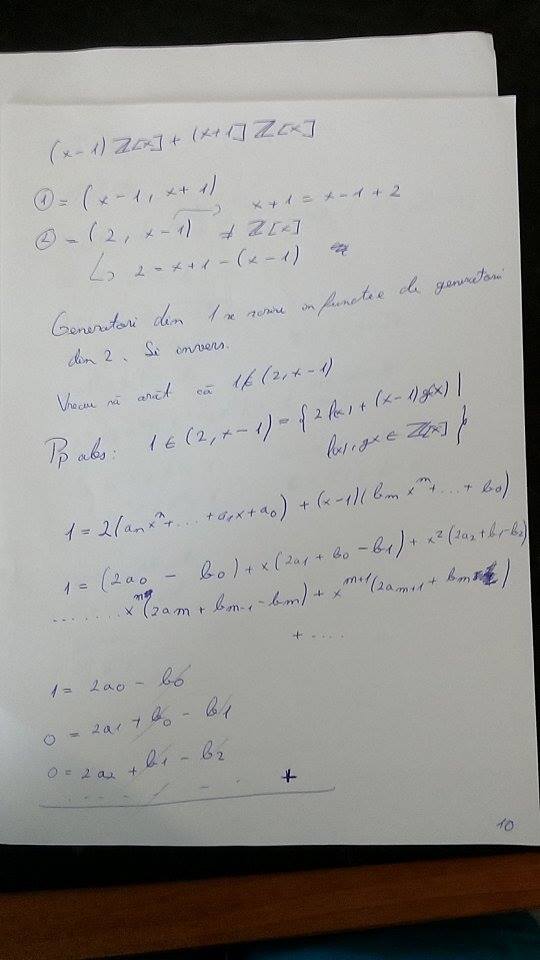 (x-1) ℤ[x] + (x+1] ℤ[x]
① = (x-1, x+1)
x+1 = x-1+2
② = (2, x-1) ≠ ℤ[x]
↳ 2 = x+1-(x-1)
Generatori din 1 se scriu in functie de generatorii
din 2. Si invers.
Vreau să arăt că 1∉(2,x-1)
Pp abs: 1 ∈ (2, x-1) = { 2f(x) + (x-1)g(x) |
f(x), gx ∈ ℤ[x] }
1 = 2(aₙxⁿ + ... + a₁x + a₀) + (x-1)(bₘxᵐ + ... + b₀)
1 = (2a₀ - b₀) + x(2a₁ + b₀ - b₁) + x²(2a₂ + b₁ - b₂)
....... xᵐ(2aₘ + bₘ₋₁ - bₘ) + xᵐ⁺¹(2aₘ₊₁ + bₘ)
+ ....
1 = 2a₀ - b₀
0 = 2a₁ + b₀ - b₁
0 = 2a₂ + b₁ - b₂
+
10